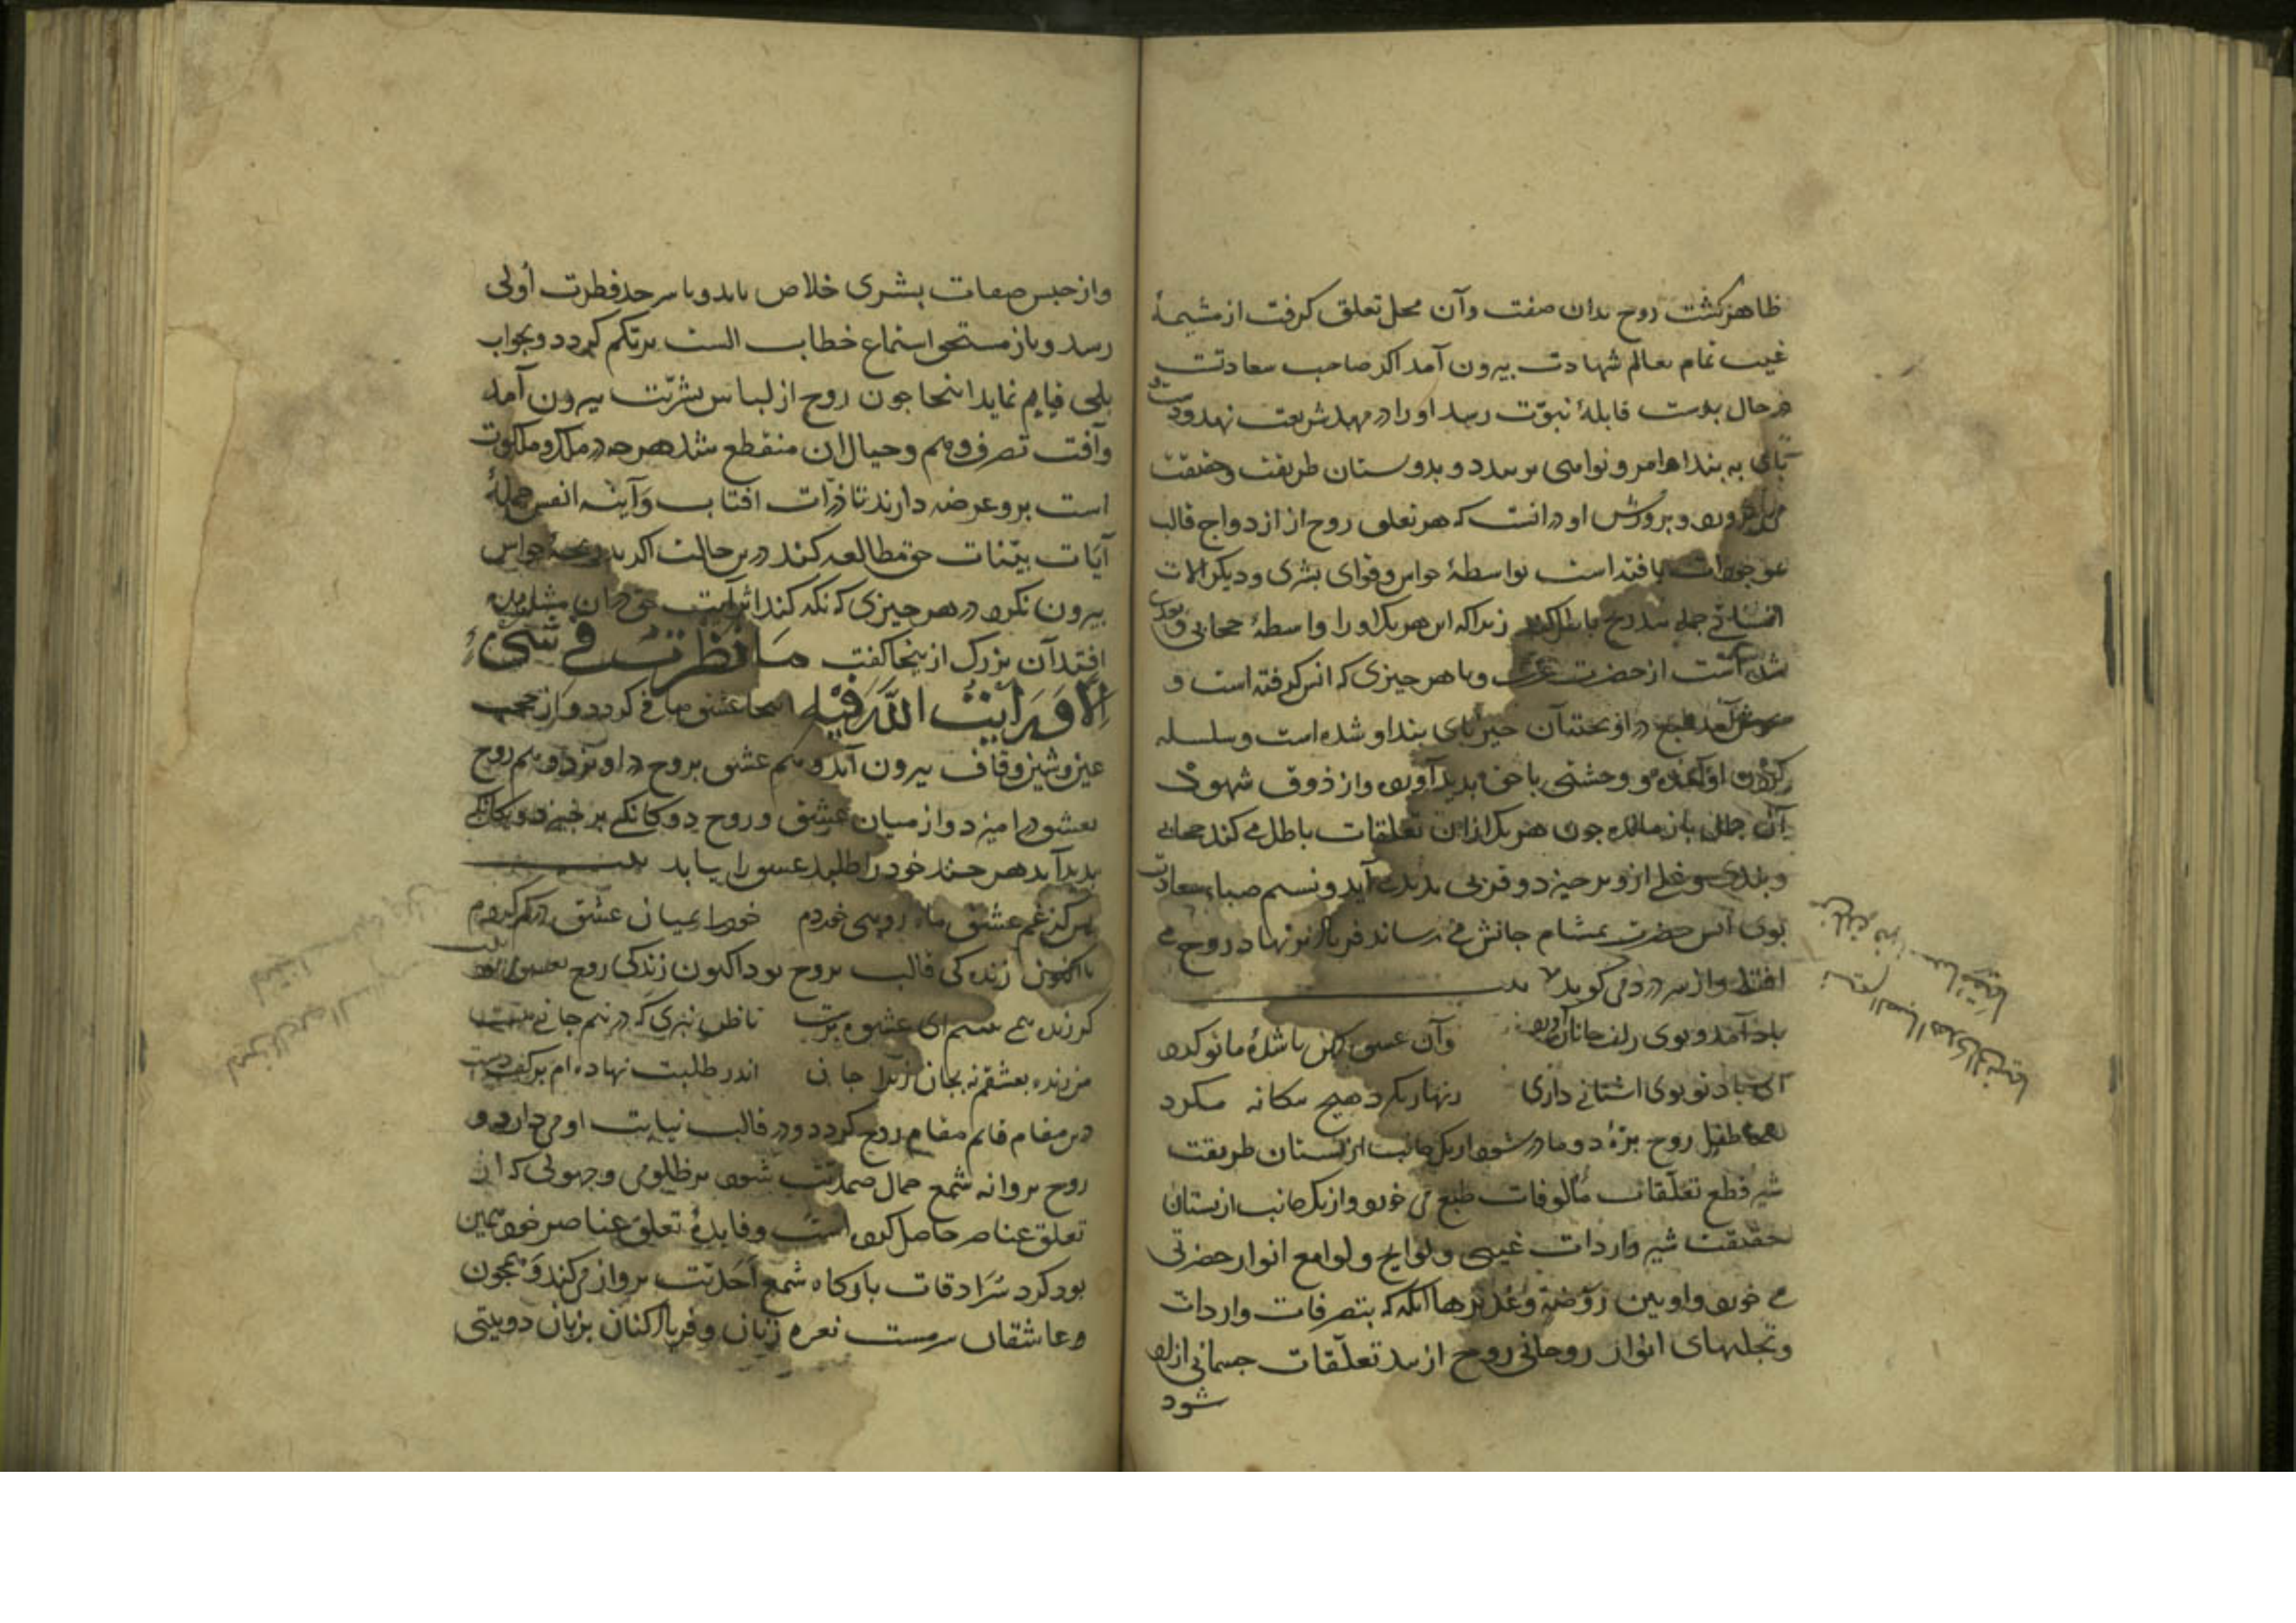 ظاهر کشت روح بدان صفت وآن محل تعلق کرفت از مشیمهٔ
غیب تمام بعالم شهادت بیرون آمد اکر صاحب سعادتست
در حال بدست قابلهٔ نبوّت رسد او را در مهد شریعت نهد و دست
پای به بند اوامر و نواهی بر بندد و بدوستان طریقت وحقیقت
می پرورد وپرورش او در انست که هر تعلق روح از ازدواج قالب
یافته است بواسطهٔ حواس وقوای بشری ودیکر الات
انسانی جمله بتدریج باطل کند زیرا که این هر یک او را واسطهٔ حجابی وبعدی
شده است از حضرت عزت وبا هر چیزی که انس کرفته است و
خوش آمد طبع در او یخته آن چیز پای بند او شده است وسلسله
کردن او آمده و وحشتی با حق پدید آورده واز ذوق شهود
آن جمال باز مانده چون هر یک از این تعلقات باطل می کند حجابی
وبندی وغلی ازو بر خیزد وقربی پدید آید ونسیم صبا سعادت
بوی انس حضرت بمشام جانش می رساند فریاد از نهاد روح می
افتد واز سر درد می کوید بیت
باد آمد و بوی زلف جانان آورد وآن عشق کهن ناشدهٔ ما نو کرد
ای باد تو بوی اشنائی داری زنهار بکرد هیچ بیکانه مکرد
اینجا طفل روح برهٔ دو مادر شود از یک جانب از پستان طریقت
شیر قطع تعلّقات مألوفات طبع می خورد واز یک جانب از پستان
حقیقت شیر واردات غیبی ولوایح ولوامع انوار حضرتی
می خورد
تا آنکه که بتصرفات واردات
وتجلیهای انوار روحانی روح از بند تعلّقات جسمانی ازاد
شود
واز حبس صفات بشری خلاص یابد وبا سر حد فطرت أولی
رسد وباز مستحق استماع خطاب الست بربکم کردد وبجواب
بلی قیام نماید اینجا چون روح از لباس بشرّیت بیرون آمد
وآفت تصرف وهم وخیال از ان منقطع شد هر چه در ملک وملکوت
است برو عرضه دارند تا ذرّات افتاب وآینه انفس جملهٔ
آیات بیّنات حق مطالعه کند درین حالت اکر بدریچهٔ حواس
بیرون نکرد در هر چیزی که نکه کند اثر آیت حق در ان مشاهده
افتد آن بزرک از ینجا کفت مَا نَظَرتُ فی شَیءٍ
اِلّا وَرَاَیتُ اللّهَ فِیهِ اینجا عشق صافی کردد واز حجب
عین وشین وقاف بیرون آید وهم عشق بروح در اویزد وهم روح
بعشق در امیزد واز میان عشق و روح دوکانکی بر خیزد ویکانکی
پدید آید هر چند خود را طلبد عشق را یابد بیت
بس کز غم عشق ماه رویی خوردم خود را بمیان عشق در کم کردم
تا اکنون زنده کی قالب بروح بود اکنون زندکی روح بعشق بیت
کر زنده همی بینیم ای عشوه پرست تا ظن نبری که در تنم جانی هست
من زنده بعشقم نه بجان زیرا جان اندر طلبت نهاده ام بر کف دست
درین مقام قائم مقام روح کردد ودر قالب نیابت او می دارد و
روح پروانه شمع جمال صمدیّت شود بر ظلومی وجهولی که از
تعلق عناصر حاصل کرده است وفایدهٔ تعلق عناصر خود همین
بود کرد سُرَادقات بارکاه شمع اَحَدیّت پرواز می کند وهمچون
وعاشقان سرمست نعره زنان وفریاد کنان بزبان دوبیتی